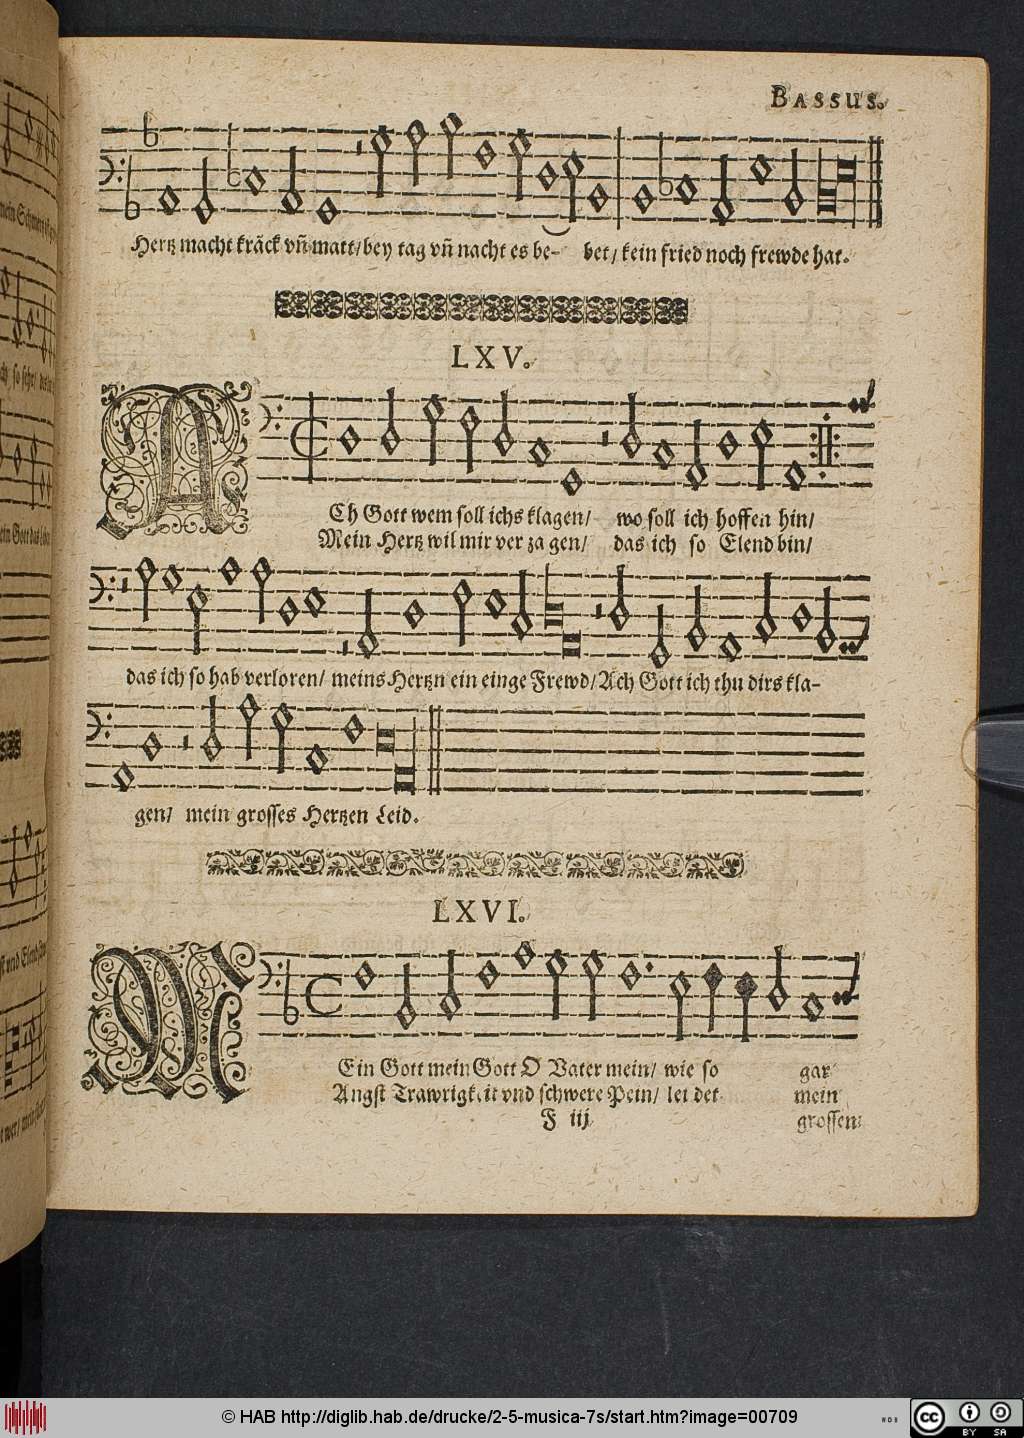 BASSUS.
Hertz macht kräck vñ matt/ bey tag vñ nacht es be- bet/ kein fried noch frewde hat.
LXV.
ACh Gott wem soll ichs klagen/ wo soll ich hoffen hin/
Mein Hertz wil mir ver za gen/ das ich so Elend bin/
das ich so hab verloren/ meins Hertzn ein einge Frewd/ Ach Gott ich thu dirs kla-
gen/ mein grosses Hertzen Leid.
LXVI.
MEin Gott mein Gott O Vater mein/ wie so gar
Angst Trawrigkeit vnd schwere Pein/ lei det mein
F iij grossen
© HAB http://diglib.hab.de/drucke/2-5-musica-7s/start.htm?image=00709
WDB
cc
BY SA